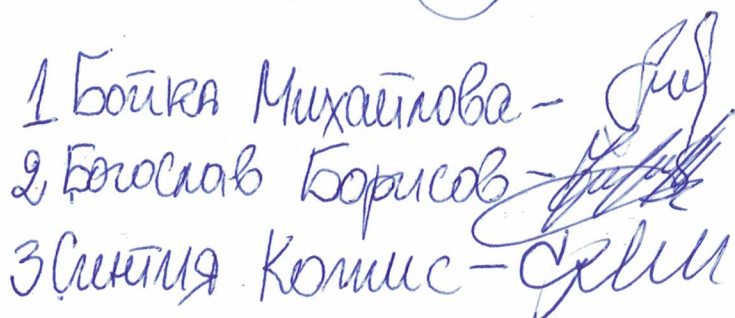 1 Бойка Михайлова –
2 Богослав Борисов –
3 Синтия Комис –